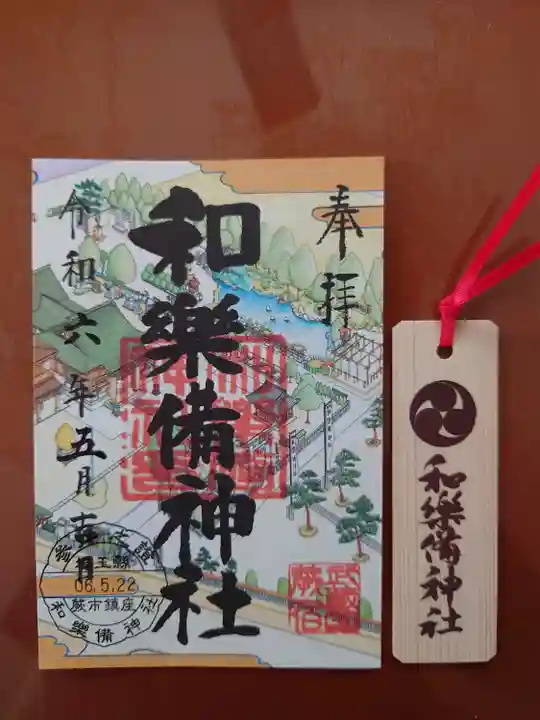 奉拝
和樂備神社
令和六年五月
埼玉縣
06.5.22
蕨市鎮座
和樂備神社
和樂備神社